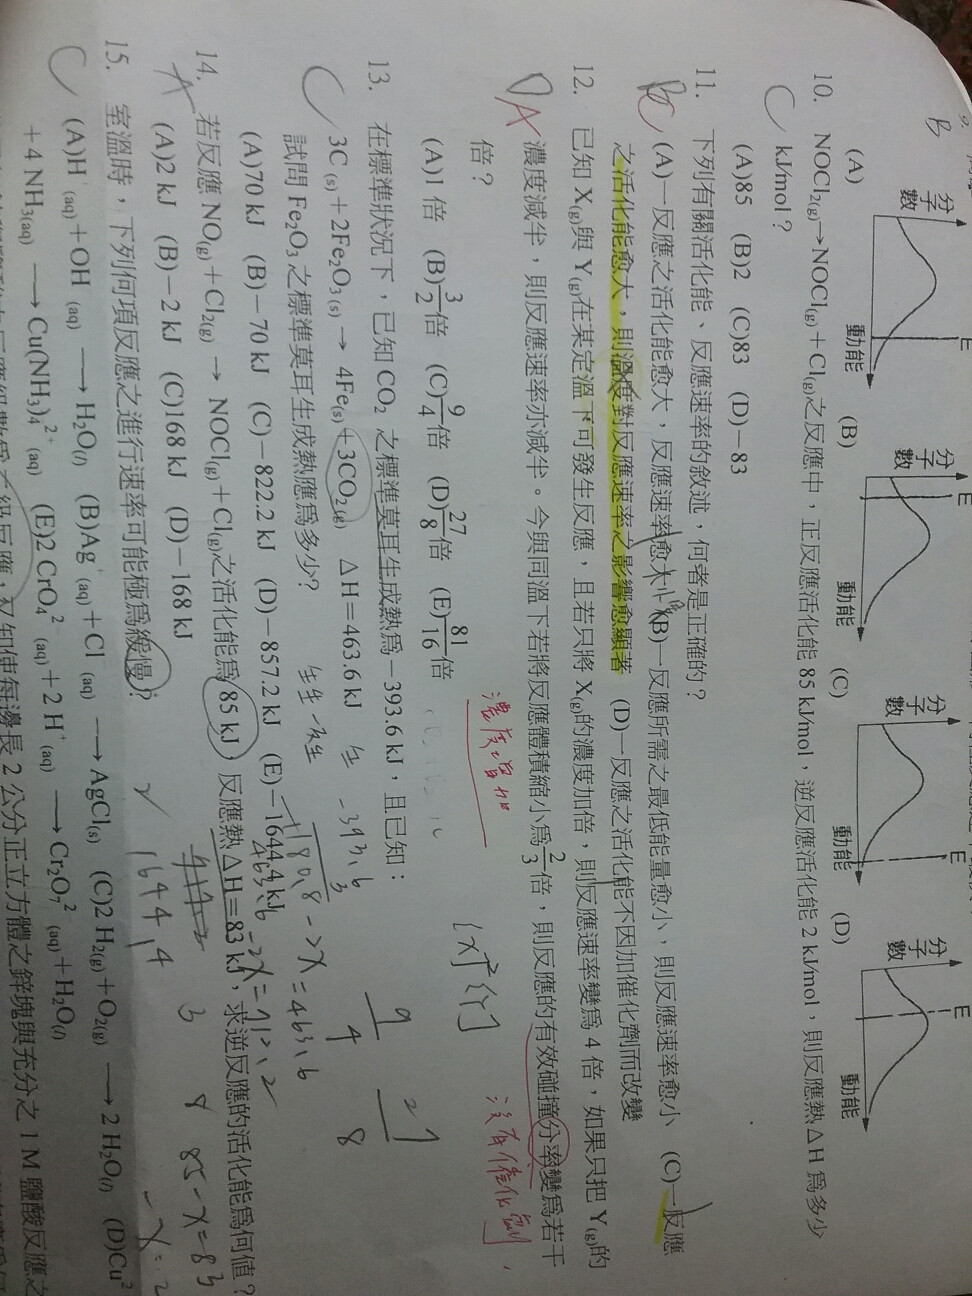 B
(A) 分子數 E 動能 (B) 分子數 E 動能 (C) 分子數 E 動能 (D) 分子數 E 動能
10. NOCl₂(g)→NOCl(g)+Cl(g)之反應中，正反應活化能 85 kJ/mol，逆反應活化能 2 kJ/mol，則反應熱△H 為多少
C kJ/mol？
(A)85 (B)2 (C)83 (D)−83
11. 下列有關活化能、反應速率的敘述，何者是正確的？
C (A)一反應之活化能愈大，反應速率愈大 小 (B)一反應所需之最低能量愈小，則反應速率愈小 (C)一反應
之活化能愈大，則溫度對反應速率之影響愈顯著 (D)一反應之活化能不因加催化劑而改變
12. 已知 X(g)與 Y(g)在某定溫下可發生反應，且若只將 X(g)的濃度加倍，則反應速率變為 4 倍，如果只把 Y(g)的
A 濃度減半，則反應速率亦減半。今與同溫下若將反應體積縮小為2/3倍，則反應的有效碰撞分率變為若干
倍？
濃度增加
[X]²[Y]
沒有催化劑
(A)1 倍 (B)3/2倍 (C)9/4倍 (D)27/8倍 (E)81/16倍
9/4
27/8
13. 在標準狀況下，已知 CO₂ 之標準莫耳生成熱為−393.6 kJ，且已知：
C 3C(s)+2Fe₂O₃(s) → 4Fe(s)+3CO₂(g) △H＝463.6 kJ
生 −393.6
3
試問 Fe₂O₃ 之標準莫耳生成熱應為多少？
−1180.8 −2X = 463.6
(A)70 kJ (B)−70 kJ (C)−822.2 kJ (D)−857.2 kJ (E)−1644.4 kJ
463.6
14. 若反應 NO(g)+Cl₂(g) → NOCl(g)+Cl(g)之活化能為 85 kJ，反應熱△H＝83 kJ，求逆反應的活化能為何值？
A (A)2 kJ (B)−2 kJ (C)168 kJ (D)−168 kJ
85−X=83
−X=
1644.4
15. 室溫時，下列何項反應之進行速率可能極為緩慢？
C (A)H⁺(aq)+OH⁻(aq) → H₂O(l) (B)Ag⁺(aq)+Cl⁻(aq) → AgCl(s) (C)2 H₂(g)+O₂(g) → 2 H₂O(l) (D)Cu²
+4 NH₃(aq) → Cu(NH₃)₄²⁺(aq) (E)2 CrO₄²⁻(aq)+2 H⁺(aq) → Cr₂O₇²⁻(aq)+H₂O(l)
級反應，又知使每邊長 2 公分正立方體之鋅塊與充分之 1 M 鹽酸反應之